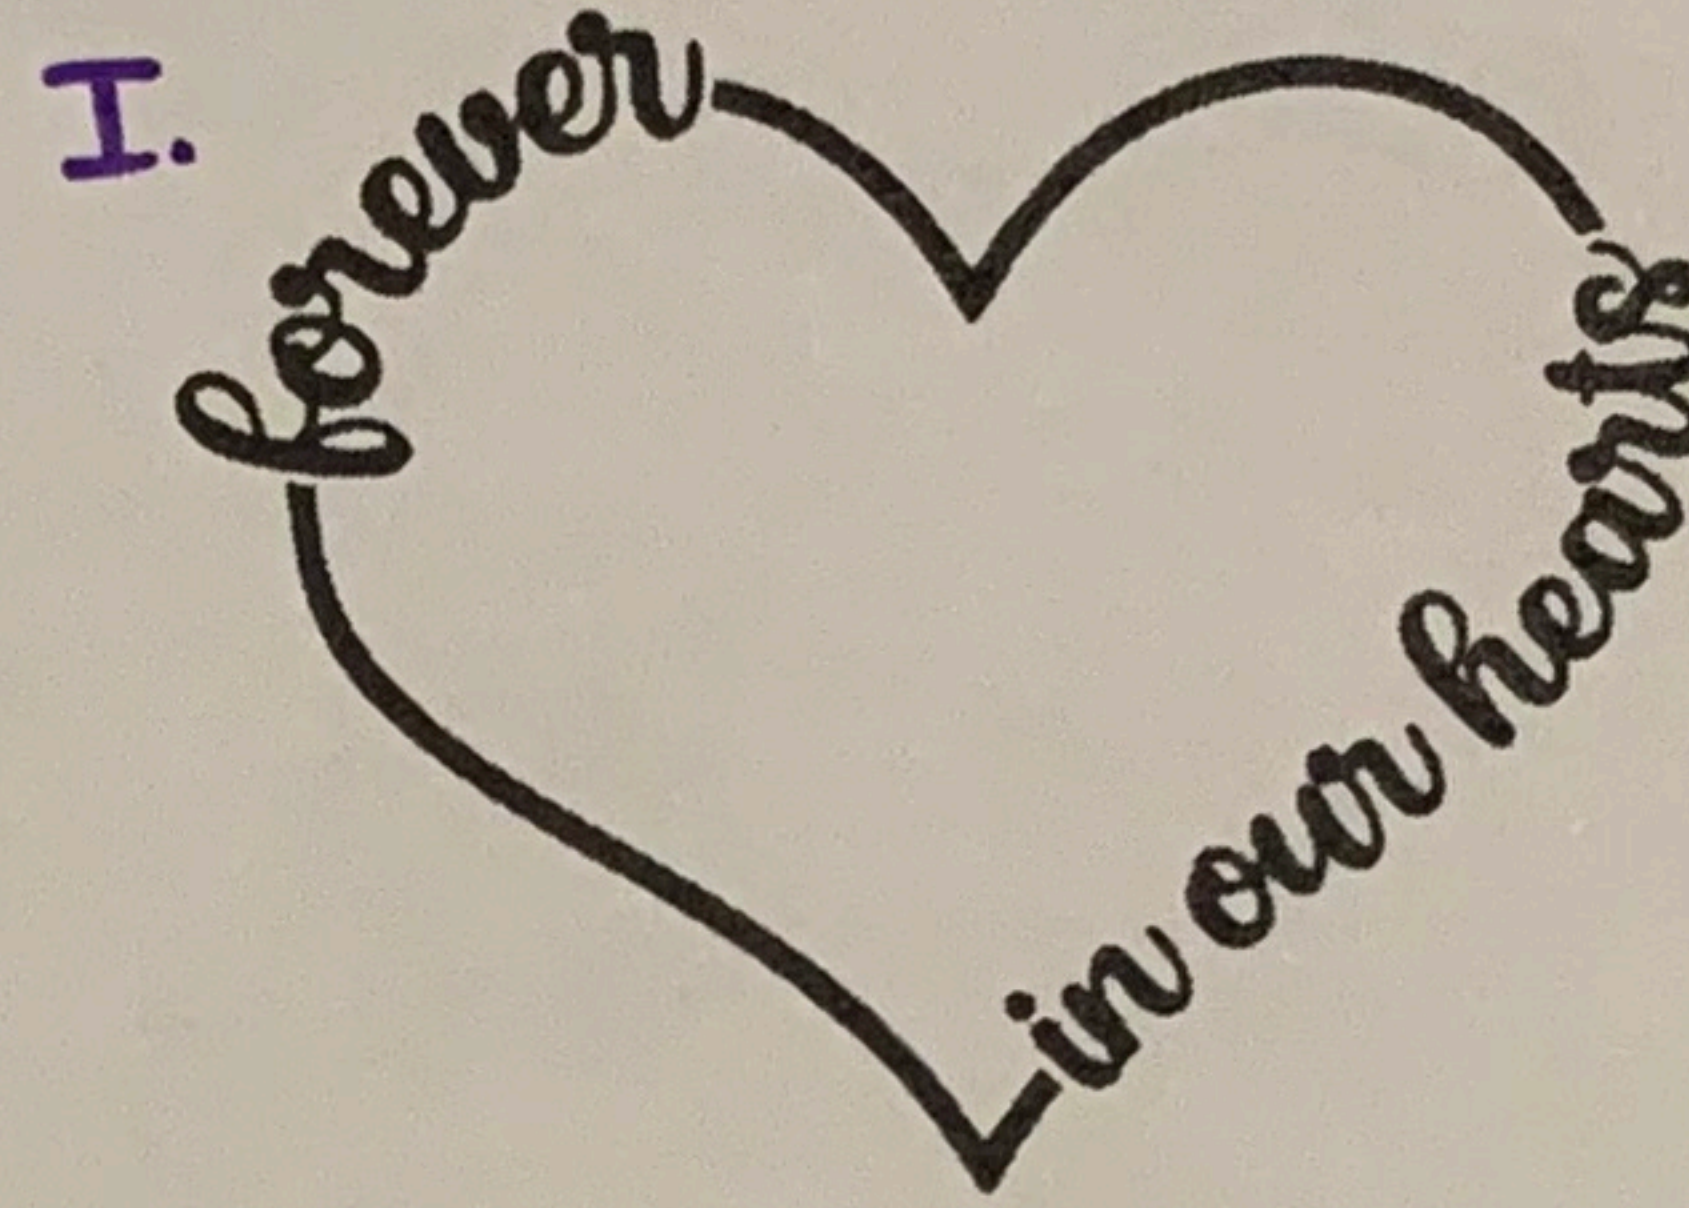 I.
forever
in our hearts